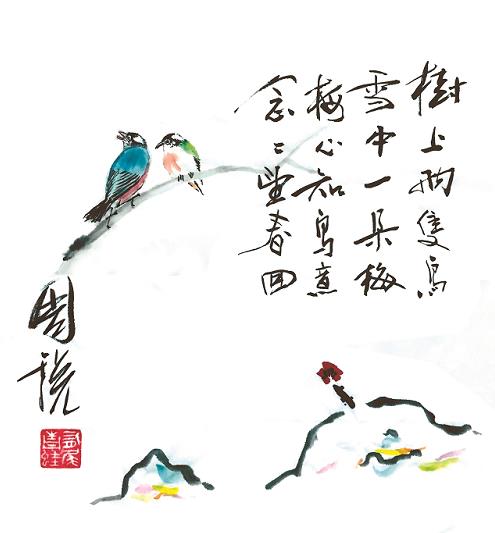 樹上兩隻鳥
雪中一朵梅
梅心知鳥意
念〻望春回
周